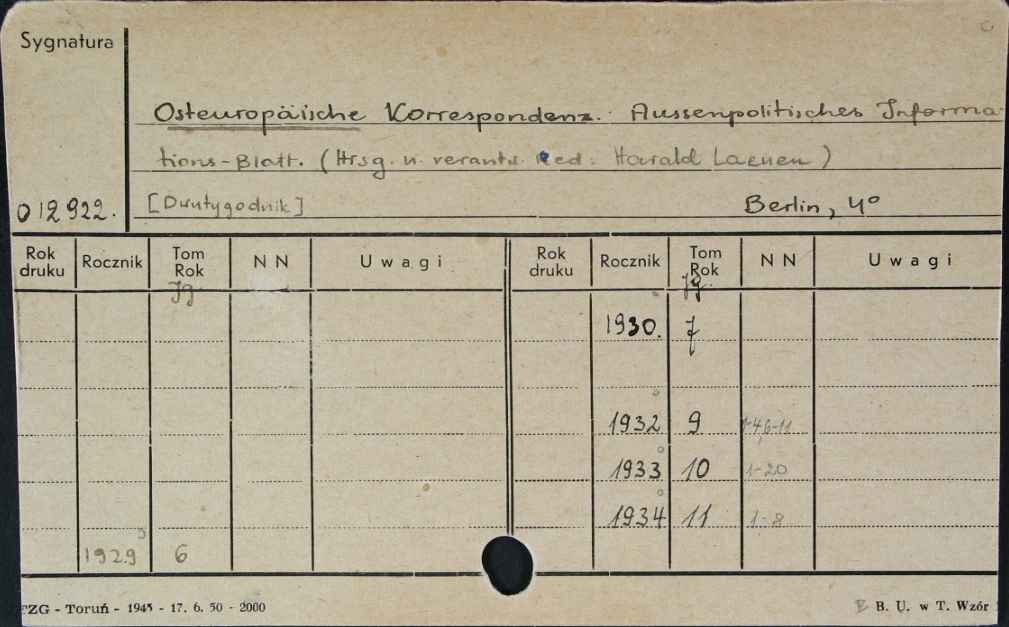 Sygnatura
Osteuropäische Korrespondenz. Aussenpolitisches Informa-
tions-Blatt. (Hrsg. u. verantw. Red: Harald Laenen)
O 12 922. [Dwutygodnik] Berlin, 4°
Rok druku Rocznik Tom Rok NN Uwagi Rok druku Rocznik Tom Rok NN Uwagi
Jg. Jg.
1930. 7
1932 9 1-4,6-11
1933 10 1-20
1934 11 1-8
1929 6
PZG - Toruń - 1945 - 17. 6. 50 - 2000 B. U. w T. Wzór